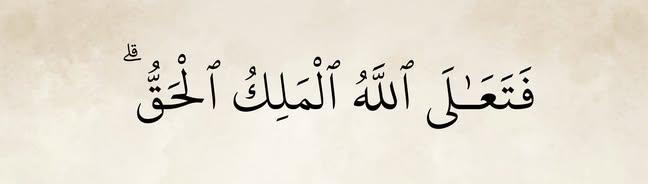 فَتَعَـٰلَى ٱللَّهُ ٱلْمَلِكُ ٱلْحَقُّ ۗ